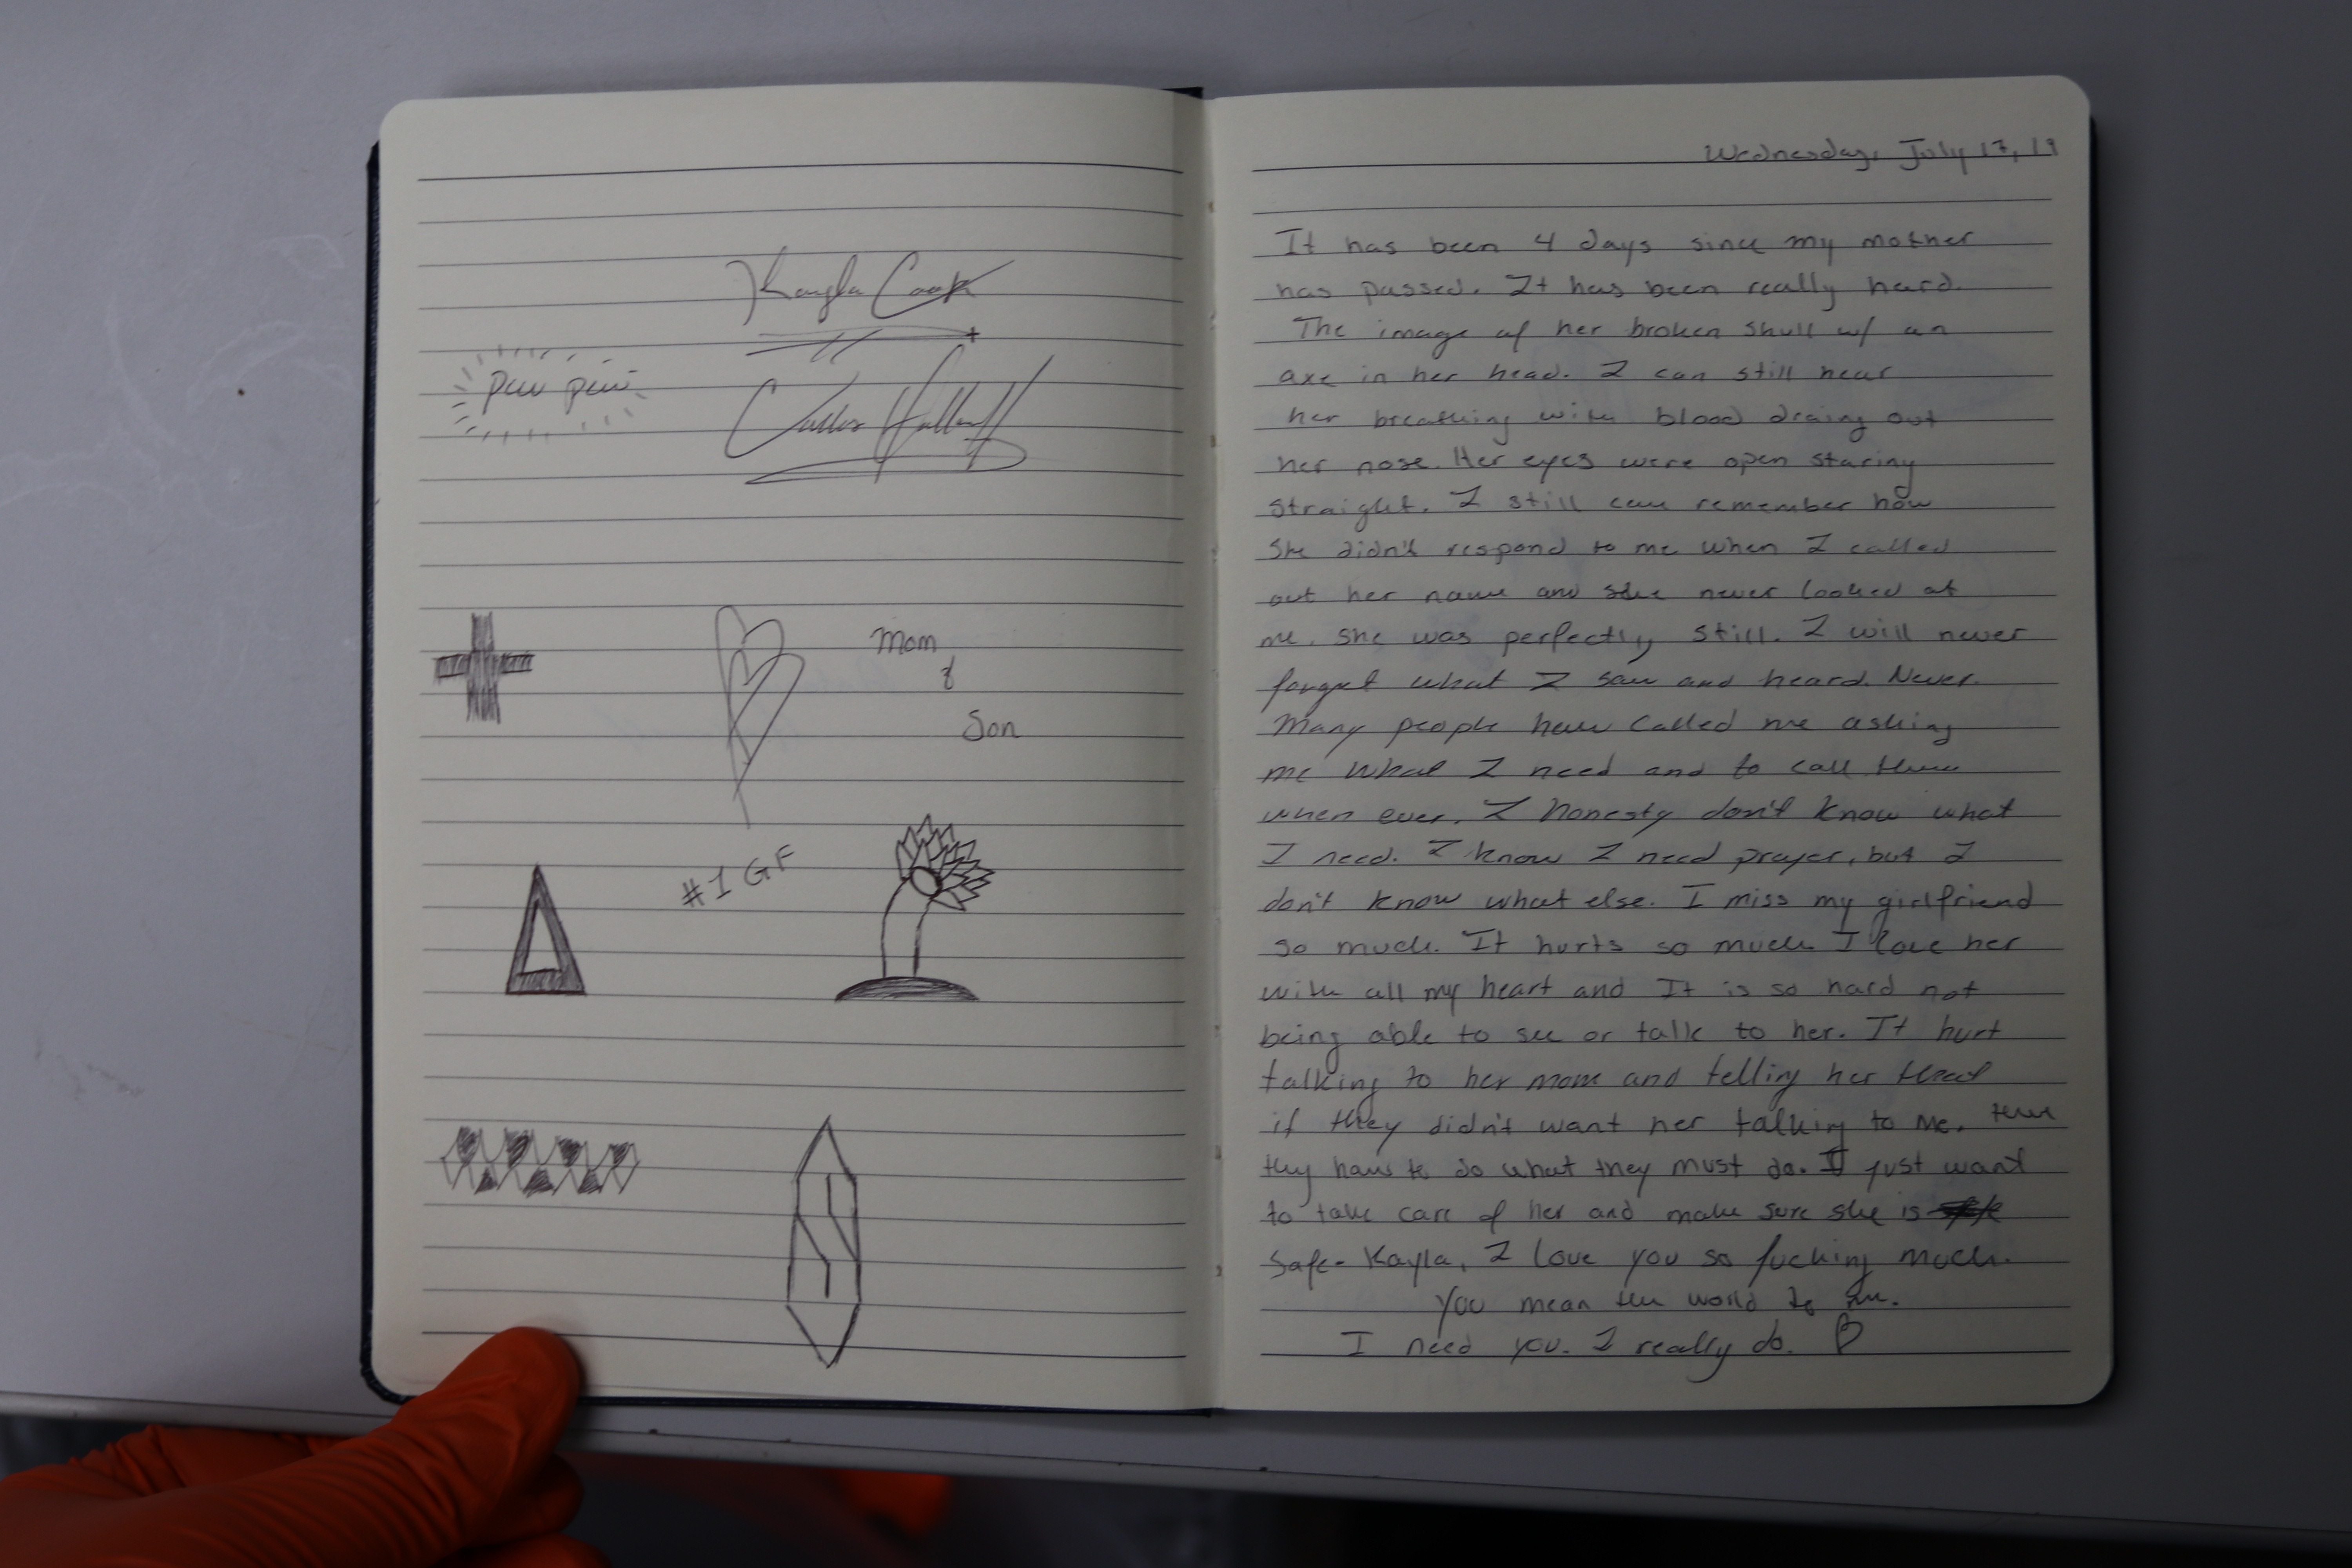 Kayla Cook
pew pew
Mom
&
Son
#1 GF
Wednesday, July 17, 19
It has been 4 days since my mother
has passed. It has been really hard.
The image of her broken skull w/ an
axe in her head. I can still hear
her breathing with blood draing out
her nose. Her eyes were open staring
straight. I still can remember how
she didn't respond to me when I called
out her name and she never looked at
me. She was perfectly still. I will never
forget what I saw and heard. Never.
Many people have called me asking
me what I need and to call them
when ever. I honesty don't know what
I need. I know I need prayer, but I
don't know what else. I miss my girlfriend
so much. It hurts so much I love her
with all my heart and It is so hard not
being able to see or talk to her. It hurt
talking to her mom and telling her that
if they didn't want her talking to me, then
they have to do what they must do. I just want
to take care of her and make sure she is
safe. Kayla, I love you so fucking much.
You mean the world to me.
I need you. I really do.